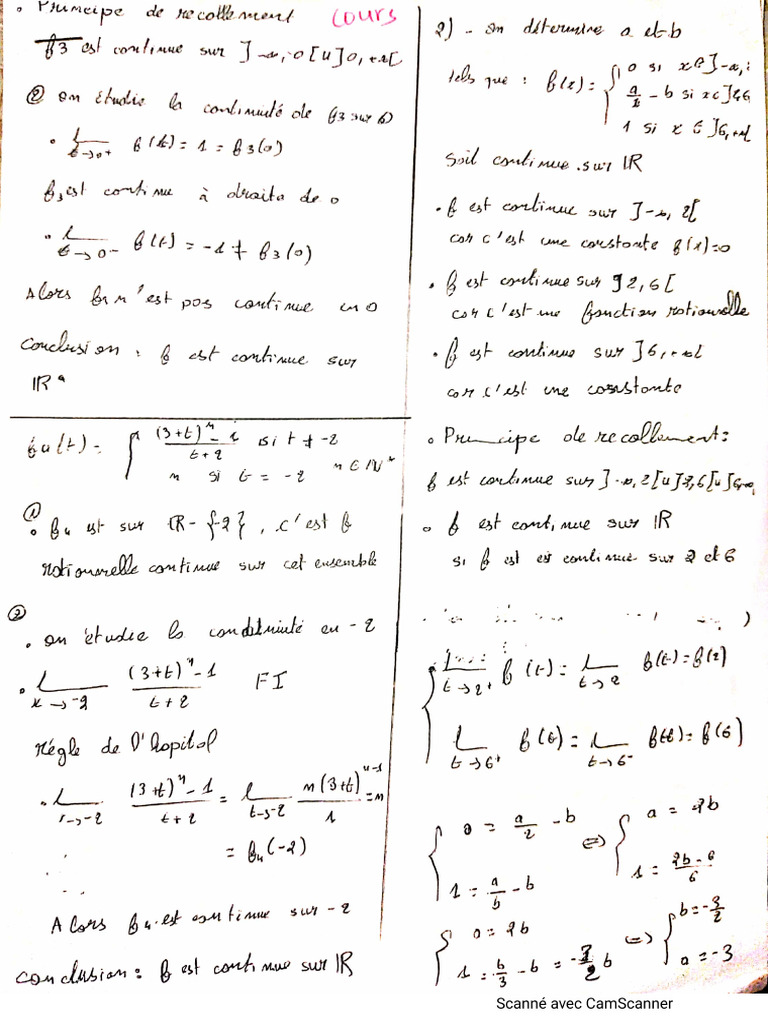 • Principe de recollement cours
f3 est continue sur ]-∞, 0[U]0, +∞[
② on étudie la continuité de f3 sur 0
• L f(t) = 1 = f3(0)
t→0+
f3 est continue à droite de 0
• L f(t) = -1 ≠ f3(0)
t→0-
Alors n'est pas continue en 0
Conclusion : f est continue sur
IR*
f4(t) = { (3+t)^n - 1 / t+2 si t ≠ -2
n si t = -2 n ∈ IN*
①
• f4 est sur IR - {-2}, c'est f
rationnelle continue sur cet ensemble
②
• on étudie la continuité en -2
• L (3+t)^n - 1 / t+2 FI
x→-2
règle de l'hopital
• L (3+t)^n - 1 / t+2 = L n(3+t)^n-1 / 1 = n
t→-2
= f4(-2)
Alors f4 est continue sur -2
conclusion : f est continue sur IR
2) - on détermine a et b
tels que : f(x) = { 0 si x ∈ ]-∞,
a/x - b si x ∈
1 si x ∈ ]6, +∞[
soit continue sur IR
• f est continue sur ]-∞, 2[
car c'est une constante f(x)=0
• f est continue sur ]2, 6[
car c'est une fonction rationnelle
• f est continue sur ]6, +∞[
car c'est une constante
• Principe de recollement :
f est continue sur ]-∞, 2[U]2,6[U]6,+∞
• f est continue sur IR
si f est continue sur 2 et 6
{ L f(t) = L f(t) = f(2)
t→2+ t→2
L f(t) = L f(t) = f(6)
t→6+ t→6-
{ 0 = a/2 - b ⇔ { a = 2b
1 = a/6 - b 1 = 2b - 6 / 6
{ a = 2b ⇔ { b = -3/2
1 = b/3 - b = b a = -3
Scanné avec CamScanner